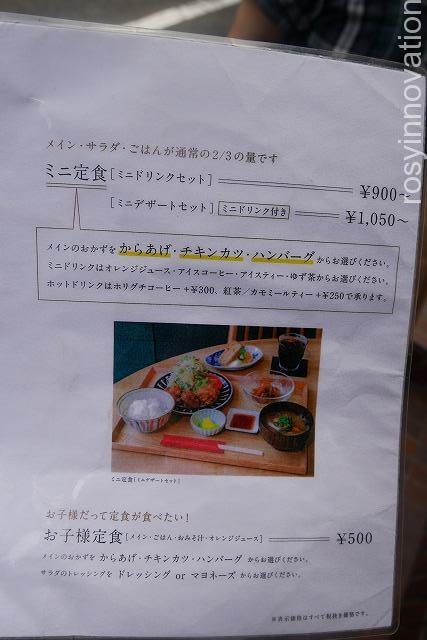 rosyinnovation
メイン・サラダ・ごはんが通常の2/3の量です
ミニ定食[ミニドリンクセット] ¥900~
[ミニデザートセット] ミニドリンク付き ¥1,050~
メインのおかずを からあげ・チキンカツ・ハンバーグ からお選びください。
ミニドリンクはオレンジジュース・アイスコーヒー・アイスティー・ゆず茶からお選びください。
ホットドリンクはホリグチコーヒー+¥300、紅茶/カモミールティー+¥250で承ります。
ミニ定食[ミニデザートセット]
お子様だって定食が食べたい!
お子様定食[メイン・ごはん・おみそ汁・オレンジジュース] ¥500
メインのおかずを からあげ・チキンカツ・ハンバーグ からお選びください。
サラダのトレッシングを ドレッシング or マヨネーズ からお選びください。
※表示価格はすべて税抜き価格です。